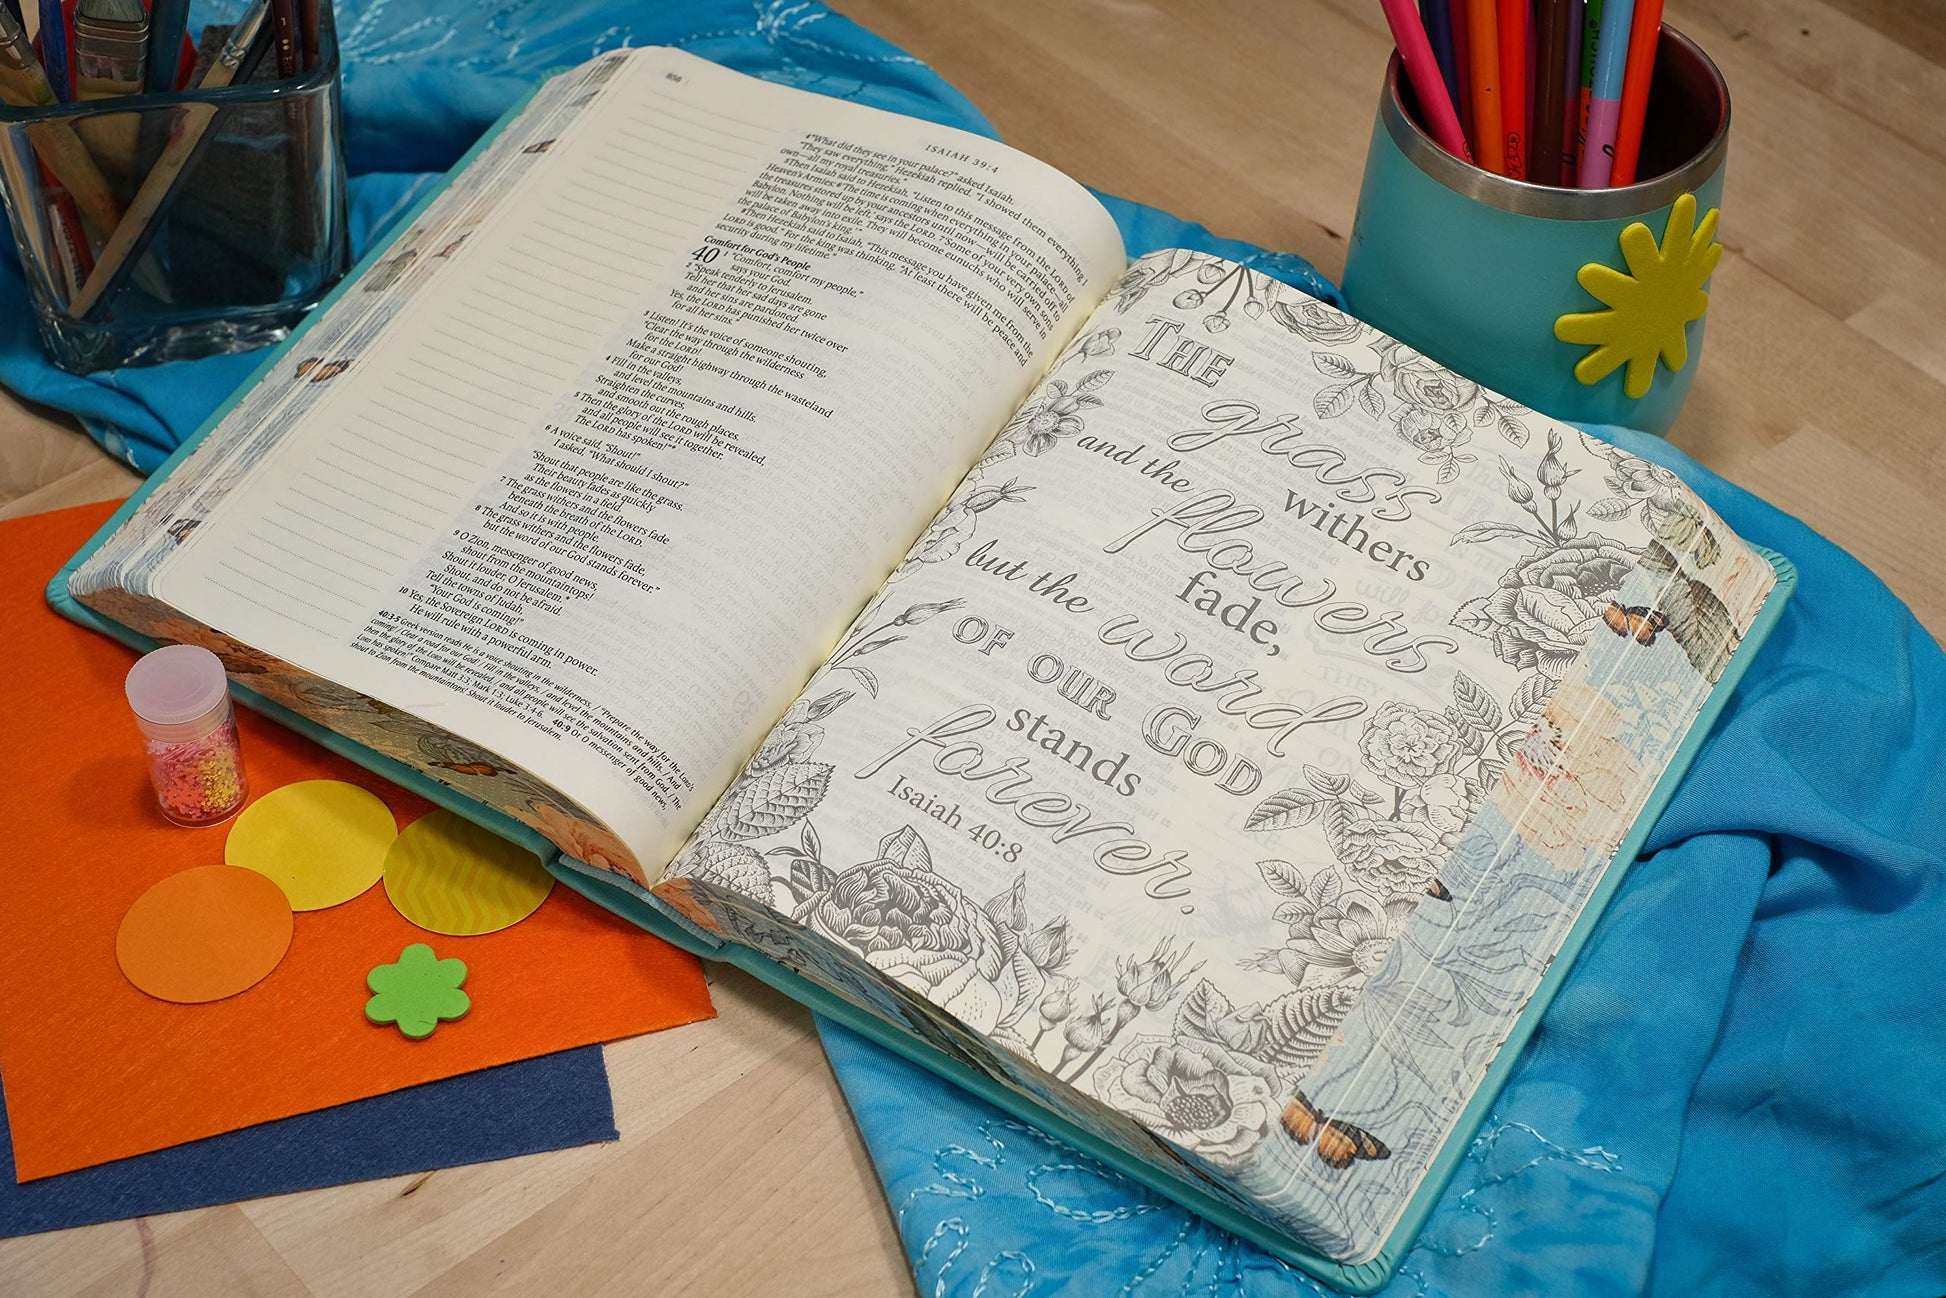 656
ISAIAH 39:4
4 “What did they see in your palace?” asked Isaiah.
“They saw everything,” Hezekiah replied. “I showed them everything I
own—all my royal treasuries.”
5 Then Isaiah said to Hezekiah, “Listen to this message from the LORD of
Heaven’s Armies: 6 ‘The time is coming when everything in your palace—all
the treasures stored up by your ancestors until now—will be carried off to
Babylon. Nothing will be left,’ says the LORD. 7 ‘Some of your very own sons
will be taken away into exile. They will become eunuchs who will serve in
the palace of Babylon’s king.’”
8 Then Hezekiah said to Isaiah, “This message you have given me from the
LORD is good.” For the king was thinking, “At least there will be peace and
security during my lifetime.”
Comfort for God’s People
40 1 “Comfort, comfort my people,”
says your God.
2 “Speak tenderly to Jerusalem.
Tell her that her sad days are gone
and her sins are pardoned.
Yes, the LORD has punished her twice over
for all her sins.”
3 Listen! It’s the voice of someone shouting,
“Clear the way through the wilderness
for the LORD!
Make a straight highway through the wasteland
for our God!
4 Fill in the valleys,
and level the mountains and hills.
Straighten the curves,
and smooth out the rough places.
5 Then the glory of the LORD will be revealed,
and all people will see it together.
The LORD has spoken!”*
6 A voice said, “Shout!”
I asked, “What should I shout?”
“Shout that people are like the grass.
Their beauty fades as quickly
as the flowers in a field.
7 The grass withers and the flowers fade
beneath the breath of the LORD.
And so it is with people.
8 The grass withers and the flowers fade,
but the word of our God stands forever.”
9 O Zion, messenger of good news,
shout from the mountaintops!
Shout it louder, O Jerusalem.*
Shout, and do not be afraid.
Tell the towns of Judah,
“Your God is coming!”
10 Yes, the Sovereign LORD is coming in power.
He will rule with a powerful arm.
40:3-5 Greek version reads He is a voice shouting in the wilderness, / “Prepare the way for the LORD’s
coming! / Clear a road for our God! / Fill in the valleys, / and level the mountains and hills. / And
then the glory of the LORD will be revealed, / and all people will see the salvation sent from God. / The
LORD has spoken!” Compare Matt 3:3; Mark 1:3; Luke 3:4-6. 40:9 Or O messenger of good news,
shout to Zion from the mountaintops! Shout it louder to Jerusalem.
THE
grass
withers
and the flowers
fade,
but the word
OF OUR GOD
stands
forever.
Isaiah 40:8